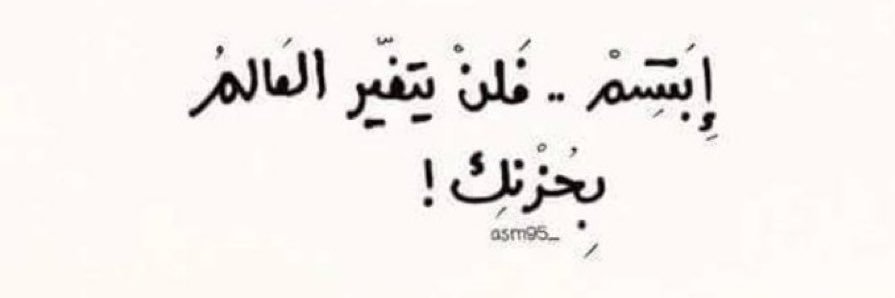 إِبَتَسِمْ .. فَلنْ يتغيّر العَالمُ
بِحُزْنكِ !
asm95_